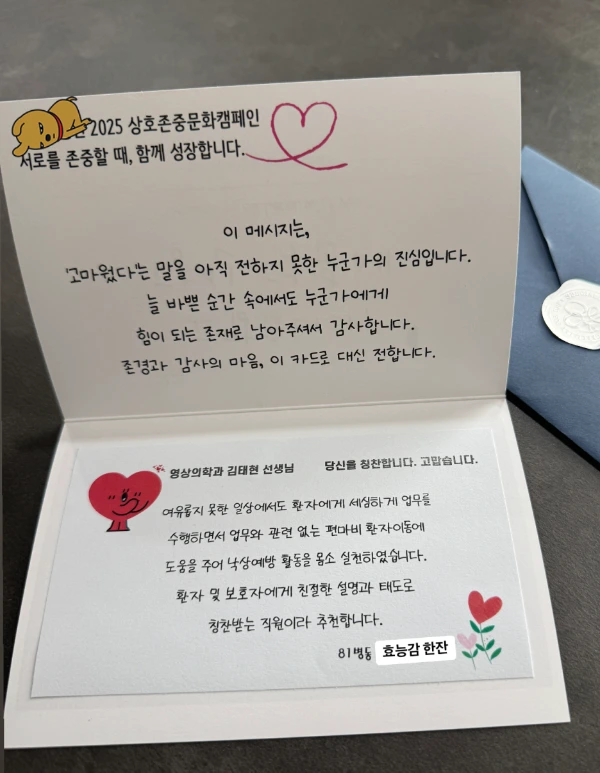 2025 상호존중문화캠페인
서로를 존중할 때, 함께 성장합니다.
이 메시지는,
'고마웠다'는 말을 아직 전하지 못한 누군가의 진심입니다.
늘 바쁜 순간 속에서도 누군가에게
힘이 되는 존재로 남아주셔서 감사합니다.
존경과 감사의 마음, 이 카드로 대신 전합니다.
영상의학과 김태현 선생님 당신을 칭찬합니다. 고맙습니다.
여유롭지 못한 일상에서도 환자에게 세심하게 업무를
수행하면서 업무와 관련 없는 편마비 환자이동에
도움을 주어 낙상예방 활동을 몸소 실천하였습니다.
환자 및 보호자에게 친절한 설명과 태도로
칭찬받는 직원이라 추천합니다.
81병동 효능감 한잔